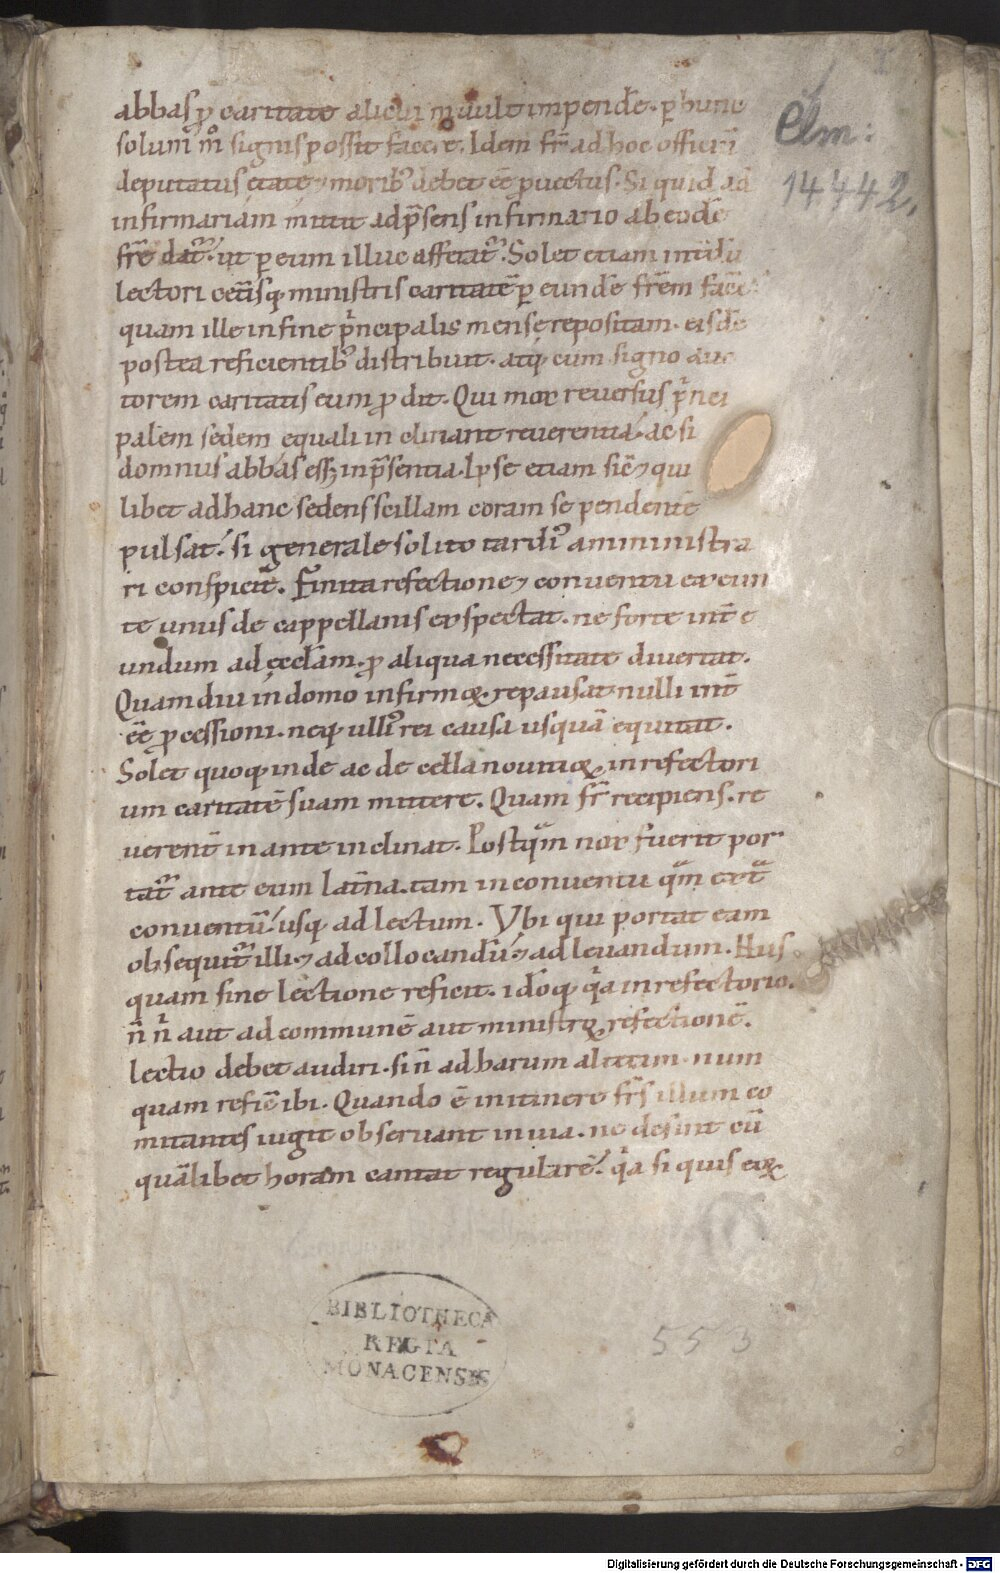 abbas ꝓ caritate alicui mittit impendẽ. ꝑ hunc
solum m̊ signis possit facere. Idem fr̃ ad hoc officiũ
deputatus etate ⁊ morib; debet eẽ ꝓuectus. Si quid ad
infirmariam mittit adp̃sens infirmario ab eodẽ
fr̃e dat̃. ut ꝑ eum illuc afferat̃. Solet etiam
lectori cet̃isq; ministris caritatẽ ꝑ eundẽ frẽm facẽ
quam ille in fine pⁱncipalis mensę repositam. eisdẽ
postea reficientib; distribuit. atq; cum signo auc
torem caritatis eum ꝓdit. Qui mox reuersus pⁱnci
palem sedem equali inclinant reuerentia. ac si
domnus abbas ess& inp̃sentia. Ipse etiam sic̃ ⁊ qui
libet ad hanc sedens scillam coram se pendentẽ
pulsat. si generale solito tardiꝰ amministra
ri conspicit̃. Finita refectione ⁊ conuentu exeun
te unus de cappellanis exspectat. ne forte int̃ e
undum ad ęcclam. ꝓ aliqua necessitate diuertat.
Quamdiu in domo infirmoꝝ repausat nulli int̃
eẽ ꝓcessioni. neq; ulliꝰ rei causa usquã equitat.
Solet quoq; inde ac de cella nouitioꝝ in refectori
um caritatẽ suam mittere. Quam fr̃ recipiens. re
uerent̃ in ante inclinat. Postqͣm nox fuerit por
tat̃ ante eum lat̃na. tam in conuentu qͣm extͣ
conuentũ. usq; ad lectum. Vbi qui portat eam
obsequit̃ illi ⁊ ad collocandũ ⁊ ad leuandum. Nus
quam sine lectione reficit. idoq; qͥa in refectorio.
ñ nⁱ aut ad communẽ aut ministroꝝ refectionẽ.
lectio debet audiri. si ñ ad harum alteram. num
quam refic̃ ibi. Quando ẽ in itinere fr̃s illum co
mitantes iugit̃ obseruant in uia. ne desint cũ
quãlibet horam cantat regularẽ. qͥa si quis eoꝝ
Clm:
14442.
BIBLIOTHECA
REGIA
MONACENSIS
553
Digitalisierung gefördert durch die Deutsche Forschungsgemeinschaft - DFG